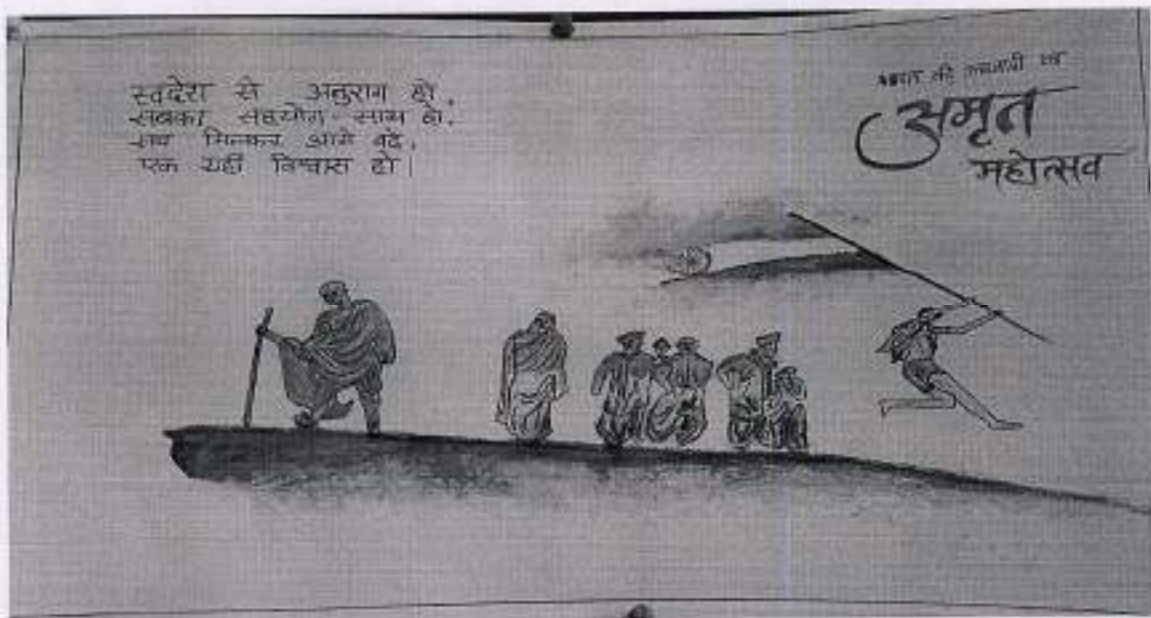 स्वदेश से अनुराग हो,
सबका सहयोग-साथ हो,
सब मिलकर आगे बढे,
एक यही विश्वास हो।
की आजादी का
अमृत
महोत्सव